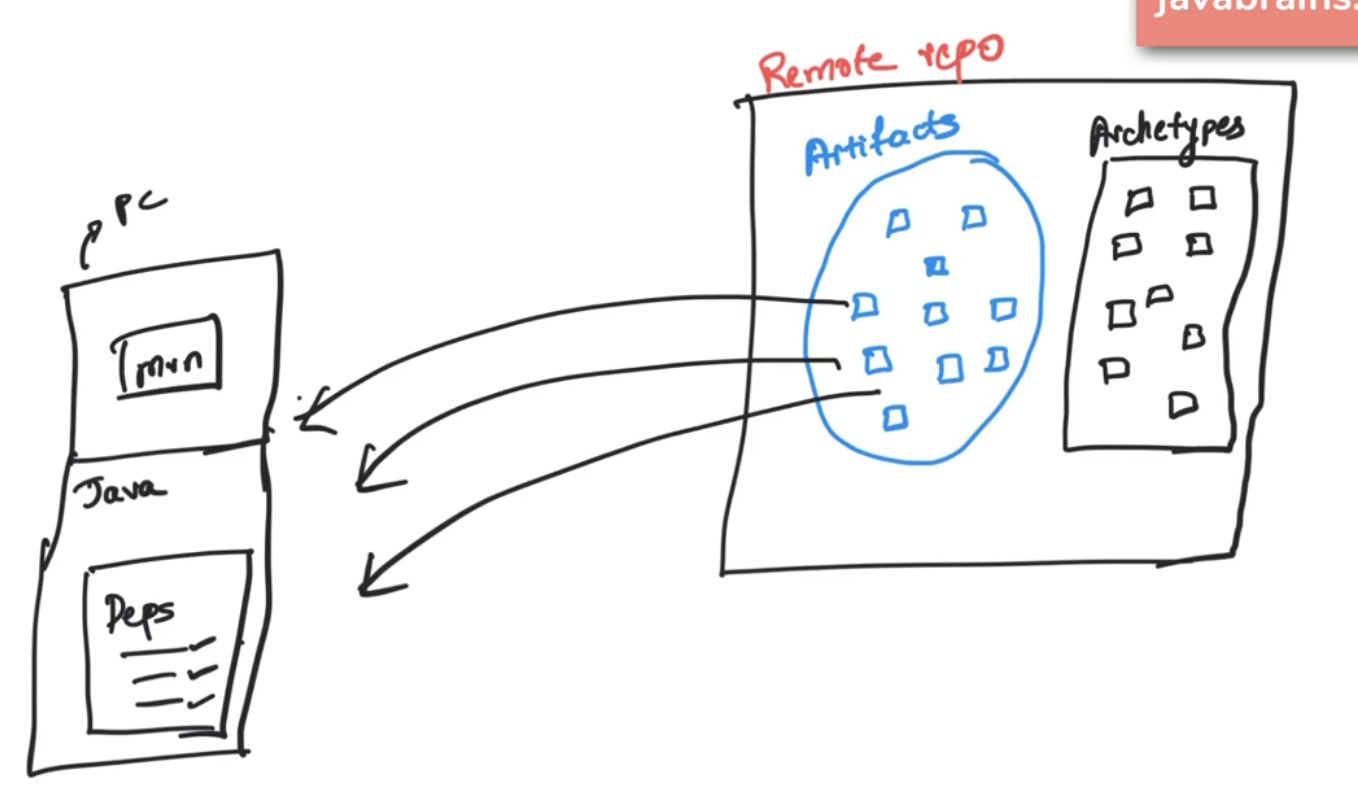 javabrains.
Remote repo
Artifacts
Archetypes
PC
mvn
Java
Deps